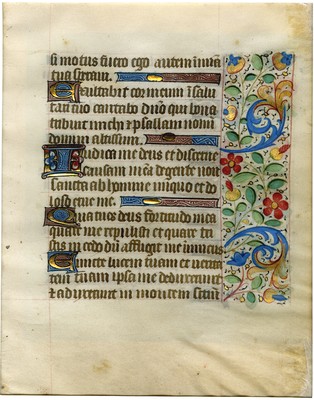 si motus fuero ego autem in mia
tua speraui.
Exultabit cor meum in salu
tari tuo cantabo dno qui bona
tribuit michi et psallam nomi
domini altissimi.
Iudica me deus et discerne
causam mea de gente non
sancta ab homine iniquo et do
loso erue me.
Quia tu es deus fortitudo mea
quare me repulisti et quare tri
stis incedo dum affligit me inimicus
Emitte lucem tuam et verita
tem tuam ipsa me deduxerunt
et adduxerunt in montem sctum